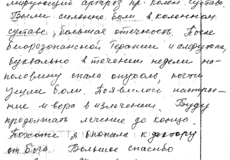 мирующий артроз пр. колен. сустава.
Были сильные боли в коленном
суставе, большая отечность. После
биорезонансной терапии и
буквально в течении недели на-
половину спала опухоль, почти
ушли боли. Появилось настрое-
ние и вера в излечение. Буду
продолжать лечение до конца.
Попала к доктору
от бога. Большое спасибо